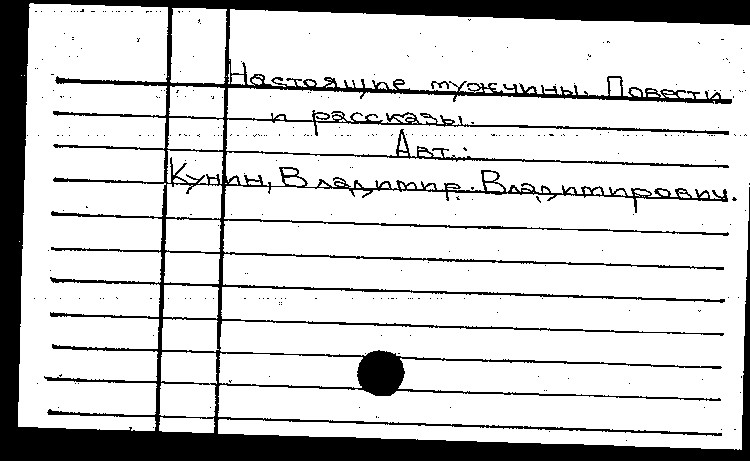 Настоящие мужчины. Повести
и рассказы.
Авт.:
Кунин, Владимир. Владимирович.